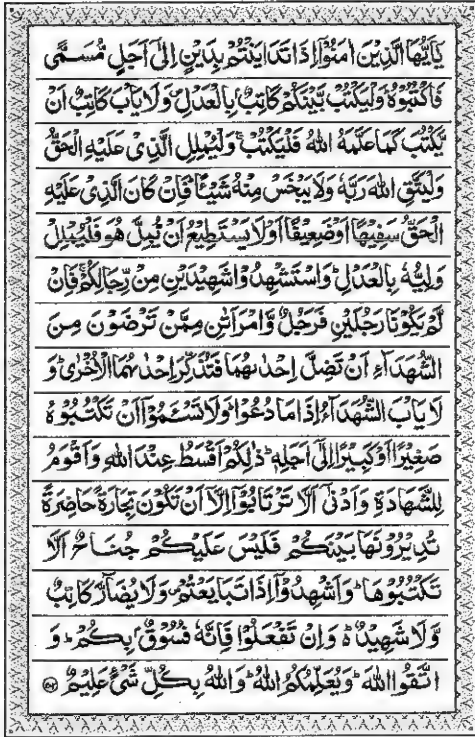 يٰۤاَيُّهَا الَّذِيْنَ اٰمَنُوْۤا اِذَا تَدَايَنْتُمْ بِدَيْنٍ اِلٰۤى اَجَلٍ مُّسَمًّى
فَاكْتُبُوْهُؕ وَلْيَكْتُبْ بَّيْنَكُمْ كَاتِبٌۢ بِالْعَدْلِ۪ وَلَا يَاْبَ كَاتِبٌ اَنْ
يَّكْتُبَ كَمَا عَلَّمَهُ اللّٰهُ فَلْيَكْتُبْۚ وَلْيُمْلِلِ الَّذِيْ عَلَيْهِ الْحَقُّ
وَلْيَتَّقِ اللّٰهَ رَبَّهٗ وَلَا يَبْخَسْ مِنْهُ شَيْـًٔاؕ فَاِنْ كَانَ الَّذِيْ عَلَيْهِ
الْحَقُّ سَفِيْهًا اَوْ ضَعِيْفًا اَوْ لَا يَسْتَطِيْعُ اَنْ يُّمِلَّ هُوَ فَلْيُمْلِلْ
وَلِيُّهٗ بِالْعَدْلِؕ وَاسْتَشْهِدُوْا شَهِيْدَيْنِ مِنْ رِّجَالِكُمْۚ فَاِنْ
لَّمْ يَكُوْنَا رَجُلَيْنِ فَرَجُلٌ وَّامْرَاَتٰنِ مِمَّنْ تَرْضَوْنَ مِنَ
الشُّهَدَآءِ اَنْ تَضِلَّ اِحْدٰىهُمَا فَتُذَكِّرَ اِحْدٰىهُمَا الْاُخْرٰىؕ وَ
لَا يَاْبَ الشُّهَدَآءُ اِذَا مَا دُعُوْاؕ وَلَا تَسْـَٔمُوْۤا اَنْ تَكْتُبُوْهُ
صَغِيْرًا اَوْ كَبِيْرًا اِلٰۤى اَجَلِهٖؕ ذٰلِكُمْ اَقْسَطُ عِنْدَ اللّٰهِ وَاَقْوَمُ
لِلشَّهَادَةِ وَاَدْنٰۤى اَلَّا تَرْتَابُوْۤا اِلَّاۤ اَنْ تَكُوْنَ تِجَارَةً حَاضِرَةً
تُدِيْرُوْنَهَا بَيْنَكُمْ فَلَيْسَ عَلَيْكُمْ جُنَاحٌ اَلَّا
تَكْتُبُوْهَاؕ وَاَشْهِدُوْۤا اِذَا تَبَايَعْتُمْ۪ وَلَا يُضَآرَّ كَاتِبٌ
وَّلَا شَهِيْدٌ۬ؕ وَاِنْ تَفْعَلُوْا فَاِنَّهٗ فُسُوْقٌۢ بِكُمْؕ وَ
اتَّقُوا اللّٰهَؕ وَيُعَلِّمُكُمُ اللّٰهُؕ وَاللّٰهُ بِكُلِّ شَيْءٍ عَلِيْمٌ ۝۲۸۲